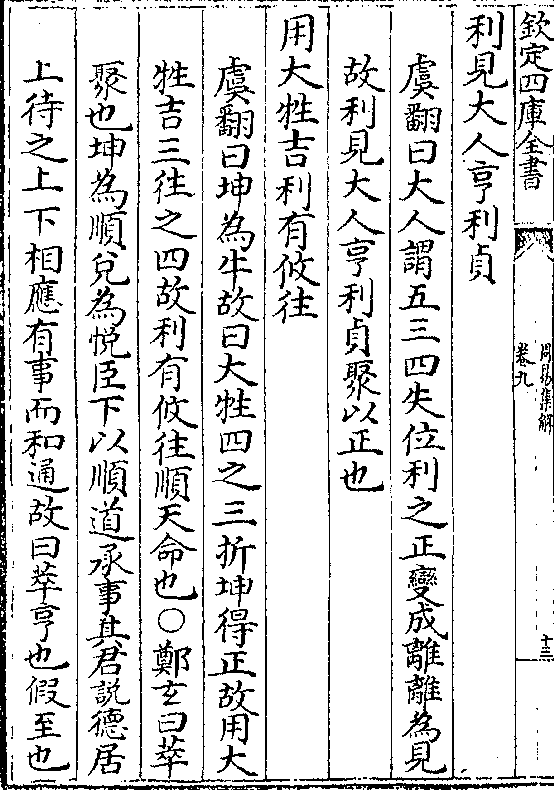 欽定四庫全書
周易集解
卷九
十三
利見大人亨利貞
虞翻曰大人謂五三四失位利之正變成離離為見
故利見大人亨利貞聚以正也
用大牲吉利有攸往
虞翻曰坤為牛故曰大牲四之三折坤得正故用大
牲吉三往之四故利有攸往順天命也○鄭玄曰萃
聚也坤為順兌為悅臣下以順道承事其君說德居
上待之上下相應有事而和通故曰萃亨也假至也